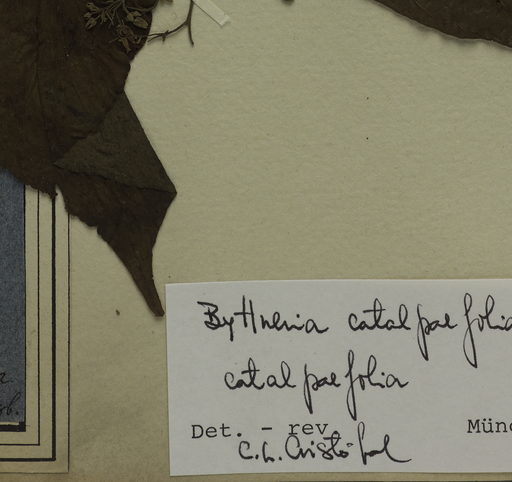 Byttneria catalpaefolia
catalpaefolia
Det. - rev.
Münc
C.L. Cristóbal